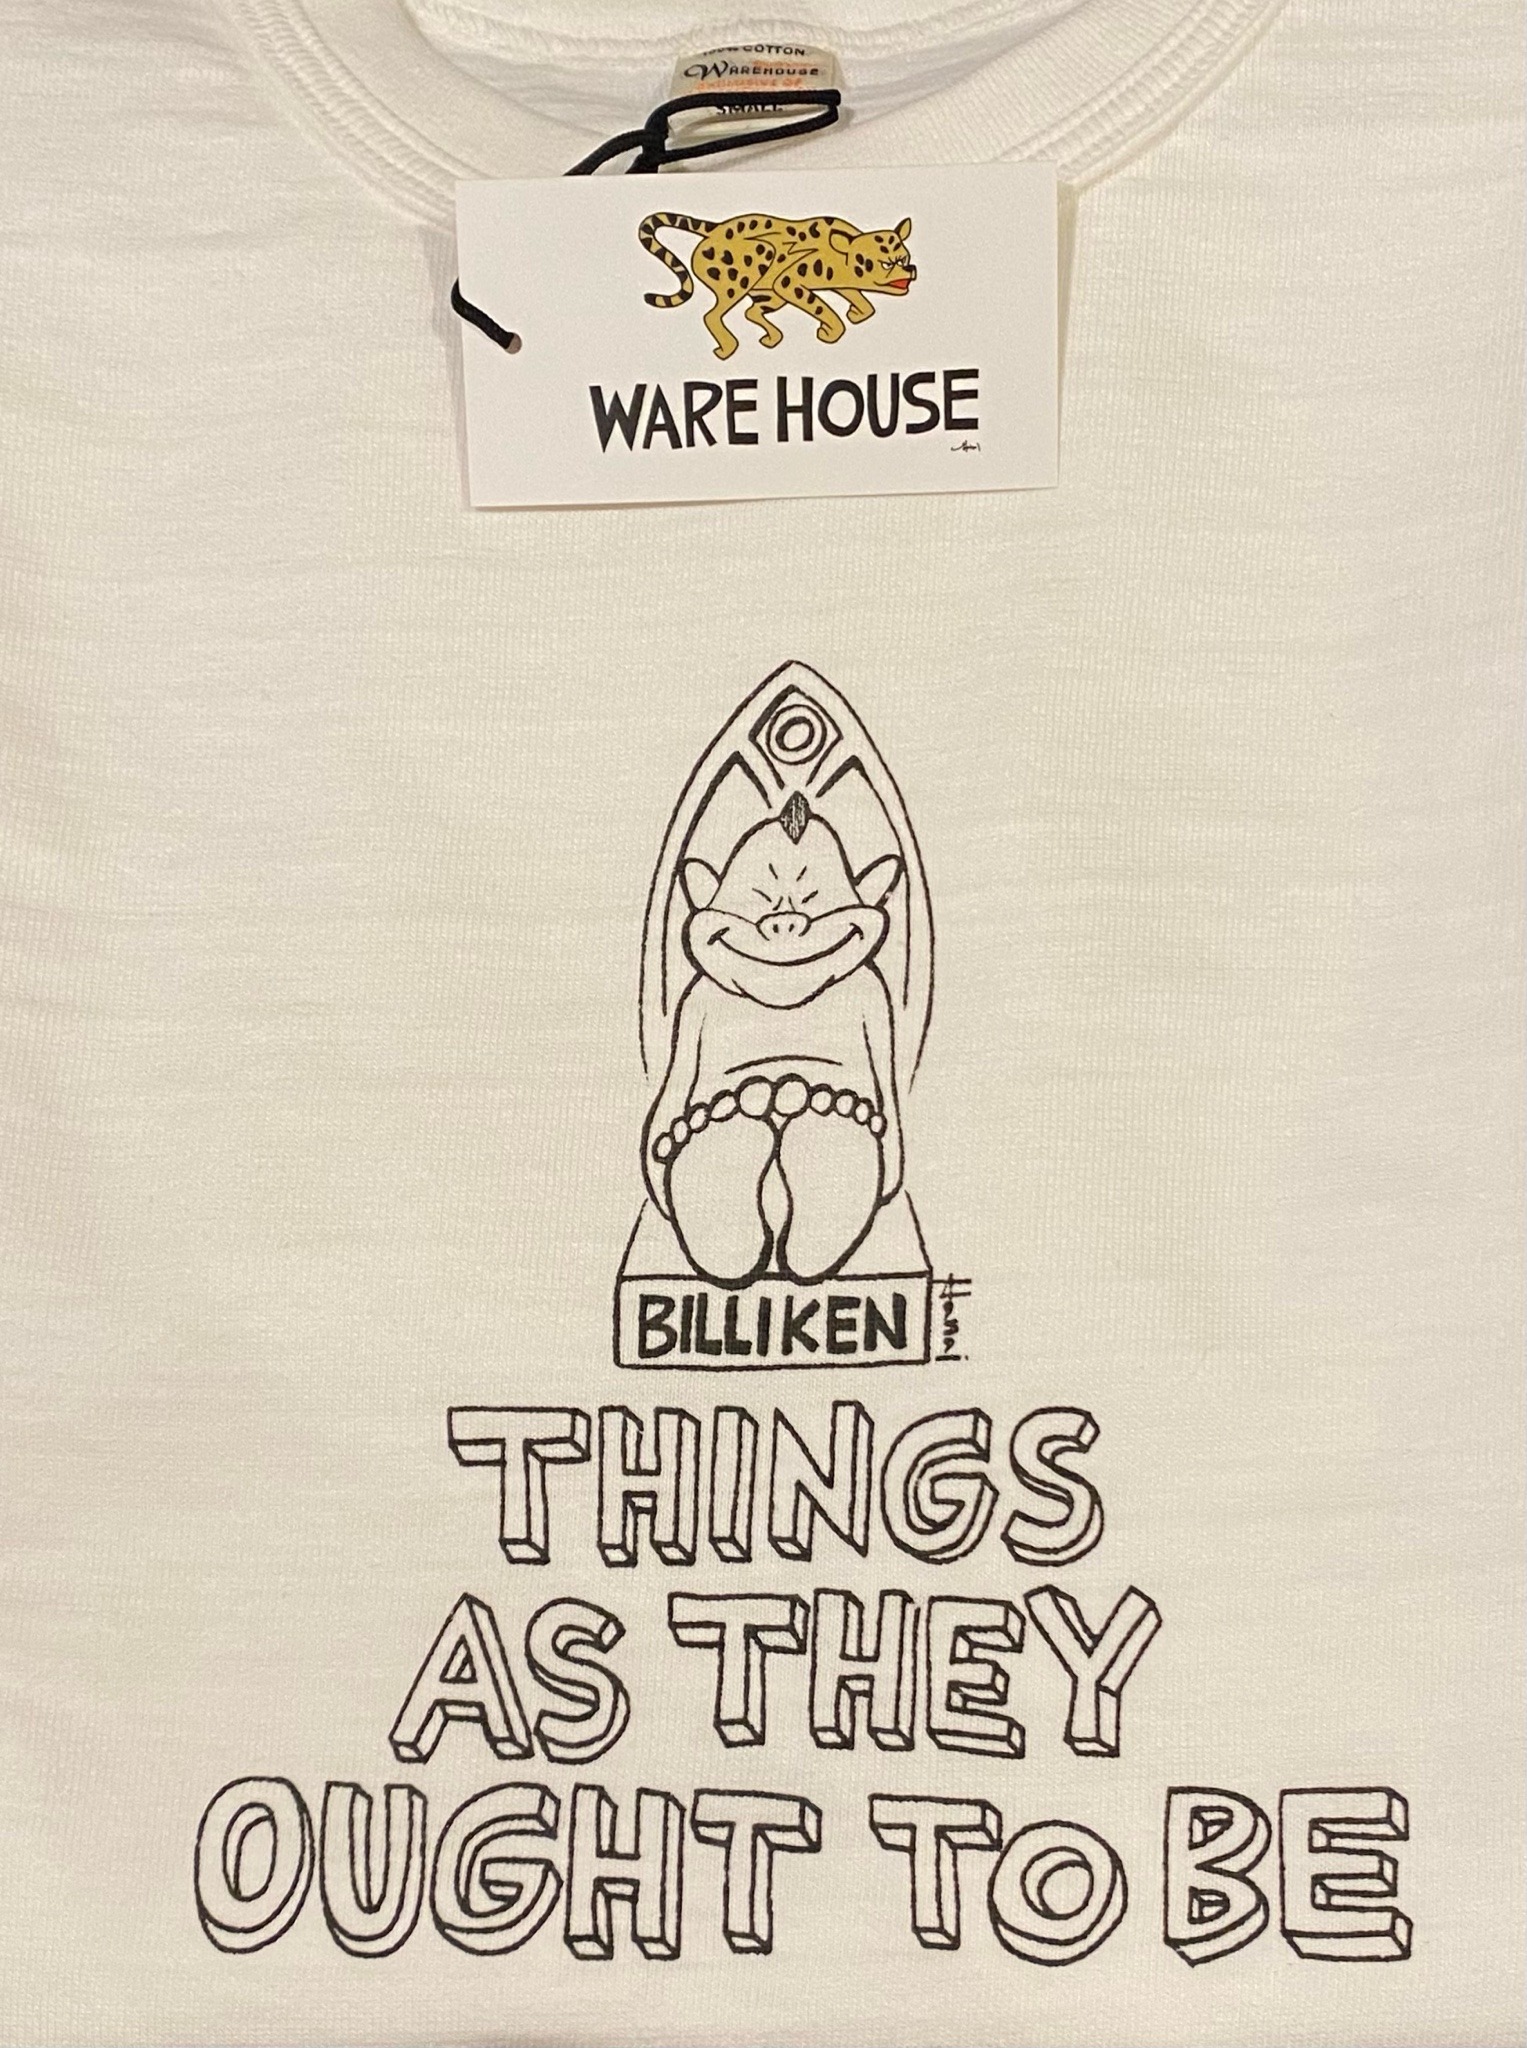 100% COTTON
WAREHOUSE
EXCLUSIVE OF
SMALL
WARE HOUSE
BILLIKEN
THINGS
AS THEY
OUGHT TO BE